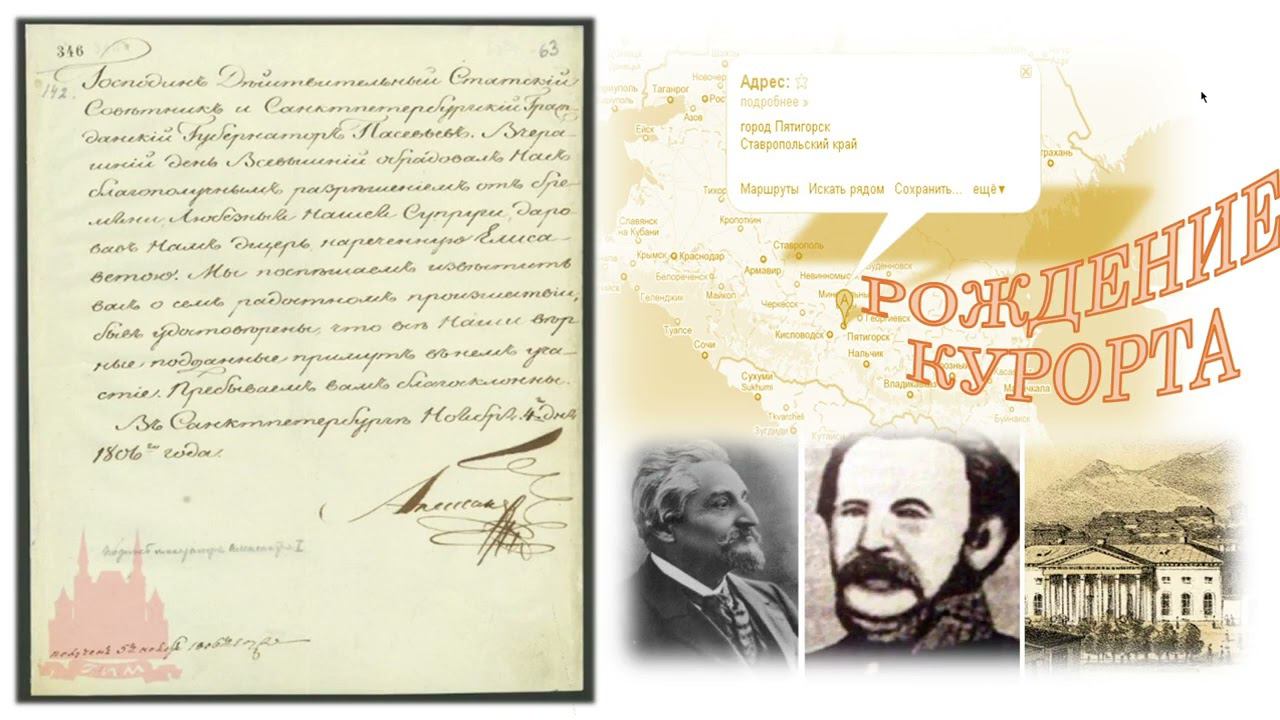 346
63
142.
Господинъ Дѣйствительный Статскій
Совѣтникъ и Санктпетербургскій Граж-
данскій Губернаторъ Пасевьевъ. Вчера-
шній день Всевышній обрадовалъ Насъ
благополучнымъ разрѣшеніемъ отъ бре-
мени Любезныя Нашея Супруги, даро-
вавъ Намъ дщерь, нареченную Елиса-
ветою. Мы поспѣшаемъ извѣстить
васъ о семъ радостномъ произшествіи,
бывъ удостовѣрены, что всѣ Наши вѣр-
ные подданные примутъ въ немъ уча-
стіе. Пребываемъ вамъ благосклонны.
Въ Санктпетербургѣ Ноября 4го дня
1806го года.
Александръ
подпись императора Александра I
получено 5го ноября 1806го года
ГИМ
Адрес:
подробнее »
город Пятигорск
Ставропольский край
Маршруты Искать рядом Сохранить... ещё▼
Таганрог
Азов
Ейск
Кропоткин
Славянск
на Кубани
Ставрополь
Крымск
Краснодар
Армавир
Невинномыс
Буденновск
Белореченск
Геленджик
Майкоп
Черкесск
Георгиевск
Туапсе
Кисловодск
Пятигорск
Сочи
Нальчик
Сухуми
Sukhumi
Владикавказ
Tkvarcheli
Зугдиди
Кутаиси
Буйнакск
A
РОЖДЕНИЕ
КУРОРТА